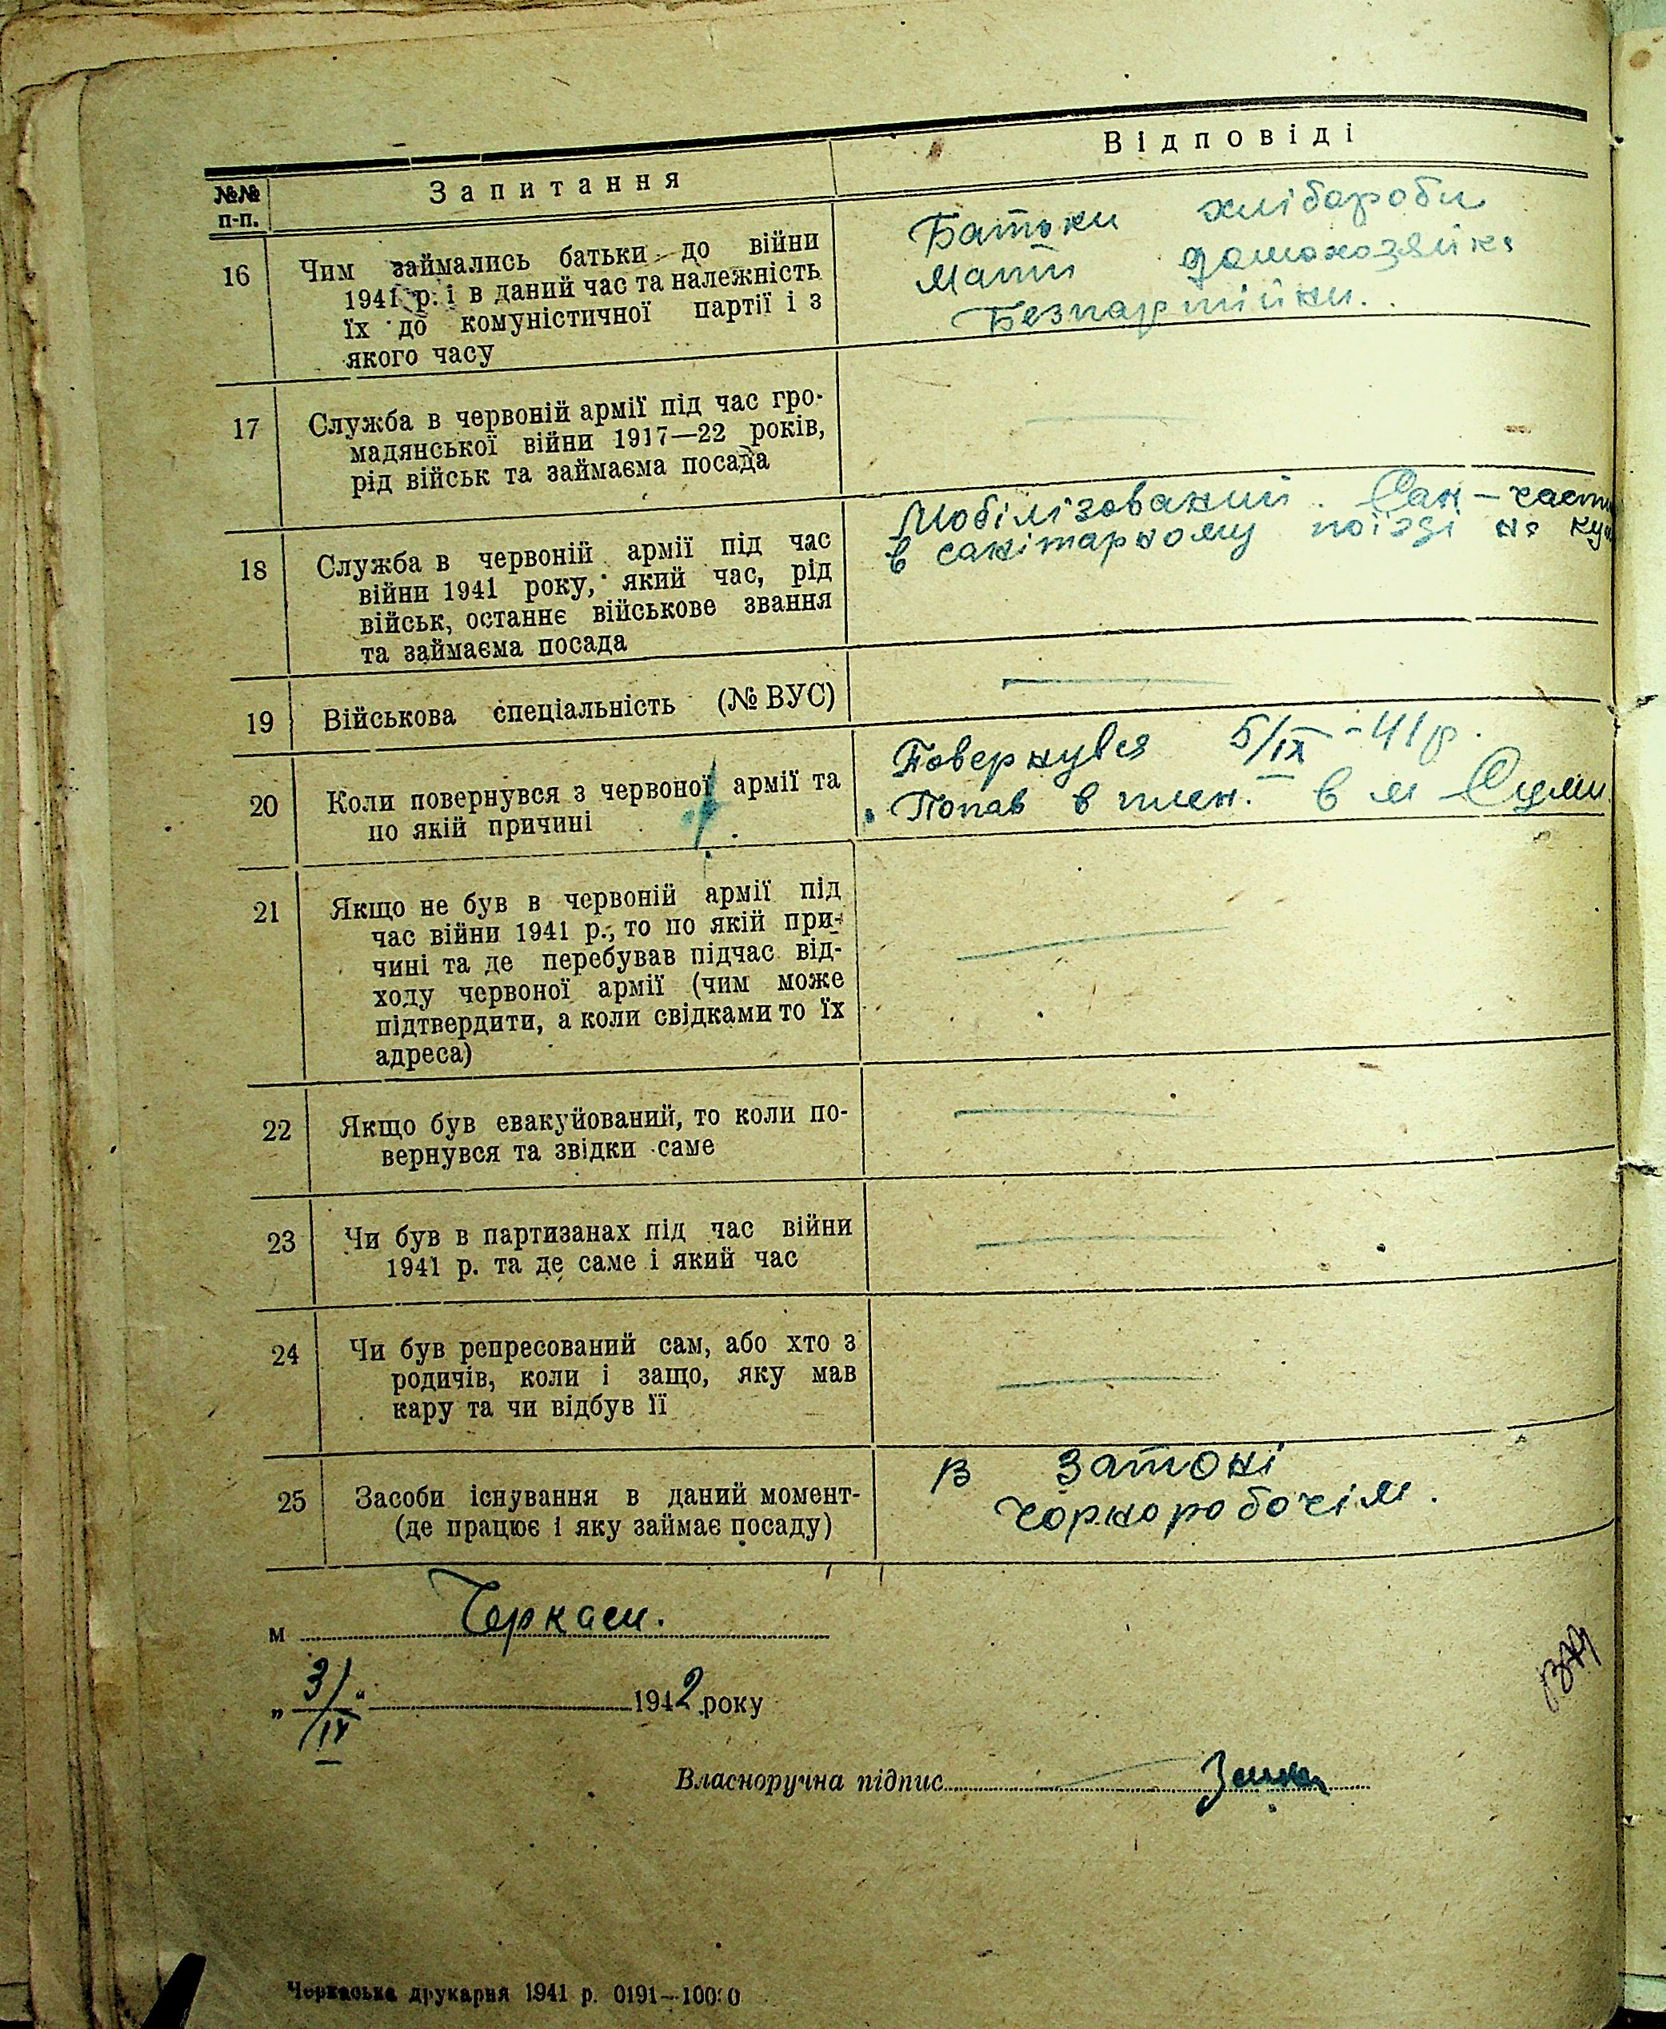 №№ п-п.
Запитання
Відповіді
16
Чим займались батьки до війни
1941 р. і в даний час та належність
їх до комуністичної партії і з
якого часу
Батьки хлібороби
Мати домохозяйка
Безпартійни.
17
Служба в червоній армії під час гро-
мадянської війни 1917—22 років,
рід військ та займаєма посада
18
Служба в червоній армії під час
війни 1941 року, який час, рід
військ, останнє військове звання
та займаєма посада
Мобілізований. Сан-част
в санітарному поїзді на
19
Військова спеціальність (№ ВУС)
20
Коли повернувся з червоної армії та
по якій причині
Повернувся 5/IX-41 р.
Попав в плен. в м Суми
21
Якщо не був в червоній армії під
час війни 1941 р., то по якій при-
чині та де перебував підчас від-
ходу червоної армії (чим може
підтвердити, а коли свідками то їх
адреса)
22
Якщо був евакуйований, то коли по-
вернувся та звідки саме
23
Чи був в партизанах під час війни
1941 р. та де саме і який час
24
Чи був репресований сам, або хто з
родичів, коли і защо, яку мав
кару та чи відбув її
25
Засоби існування в даний момент-
(де працює і яку займає посаду)
В затоні
чорноробочім.
м Черкаси.
„ 3/IV “ 1942 року
Власноручна підпис
Черкаська друкарня 1941 р. 0191—10000